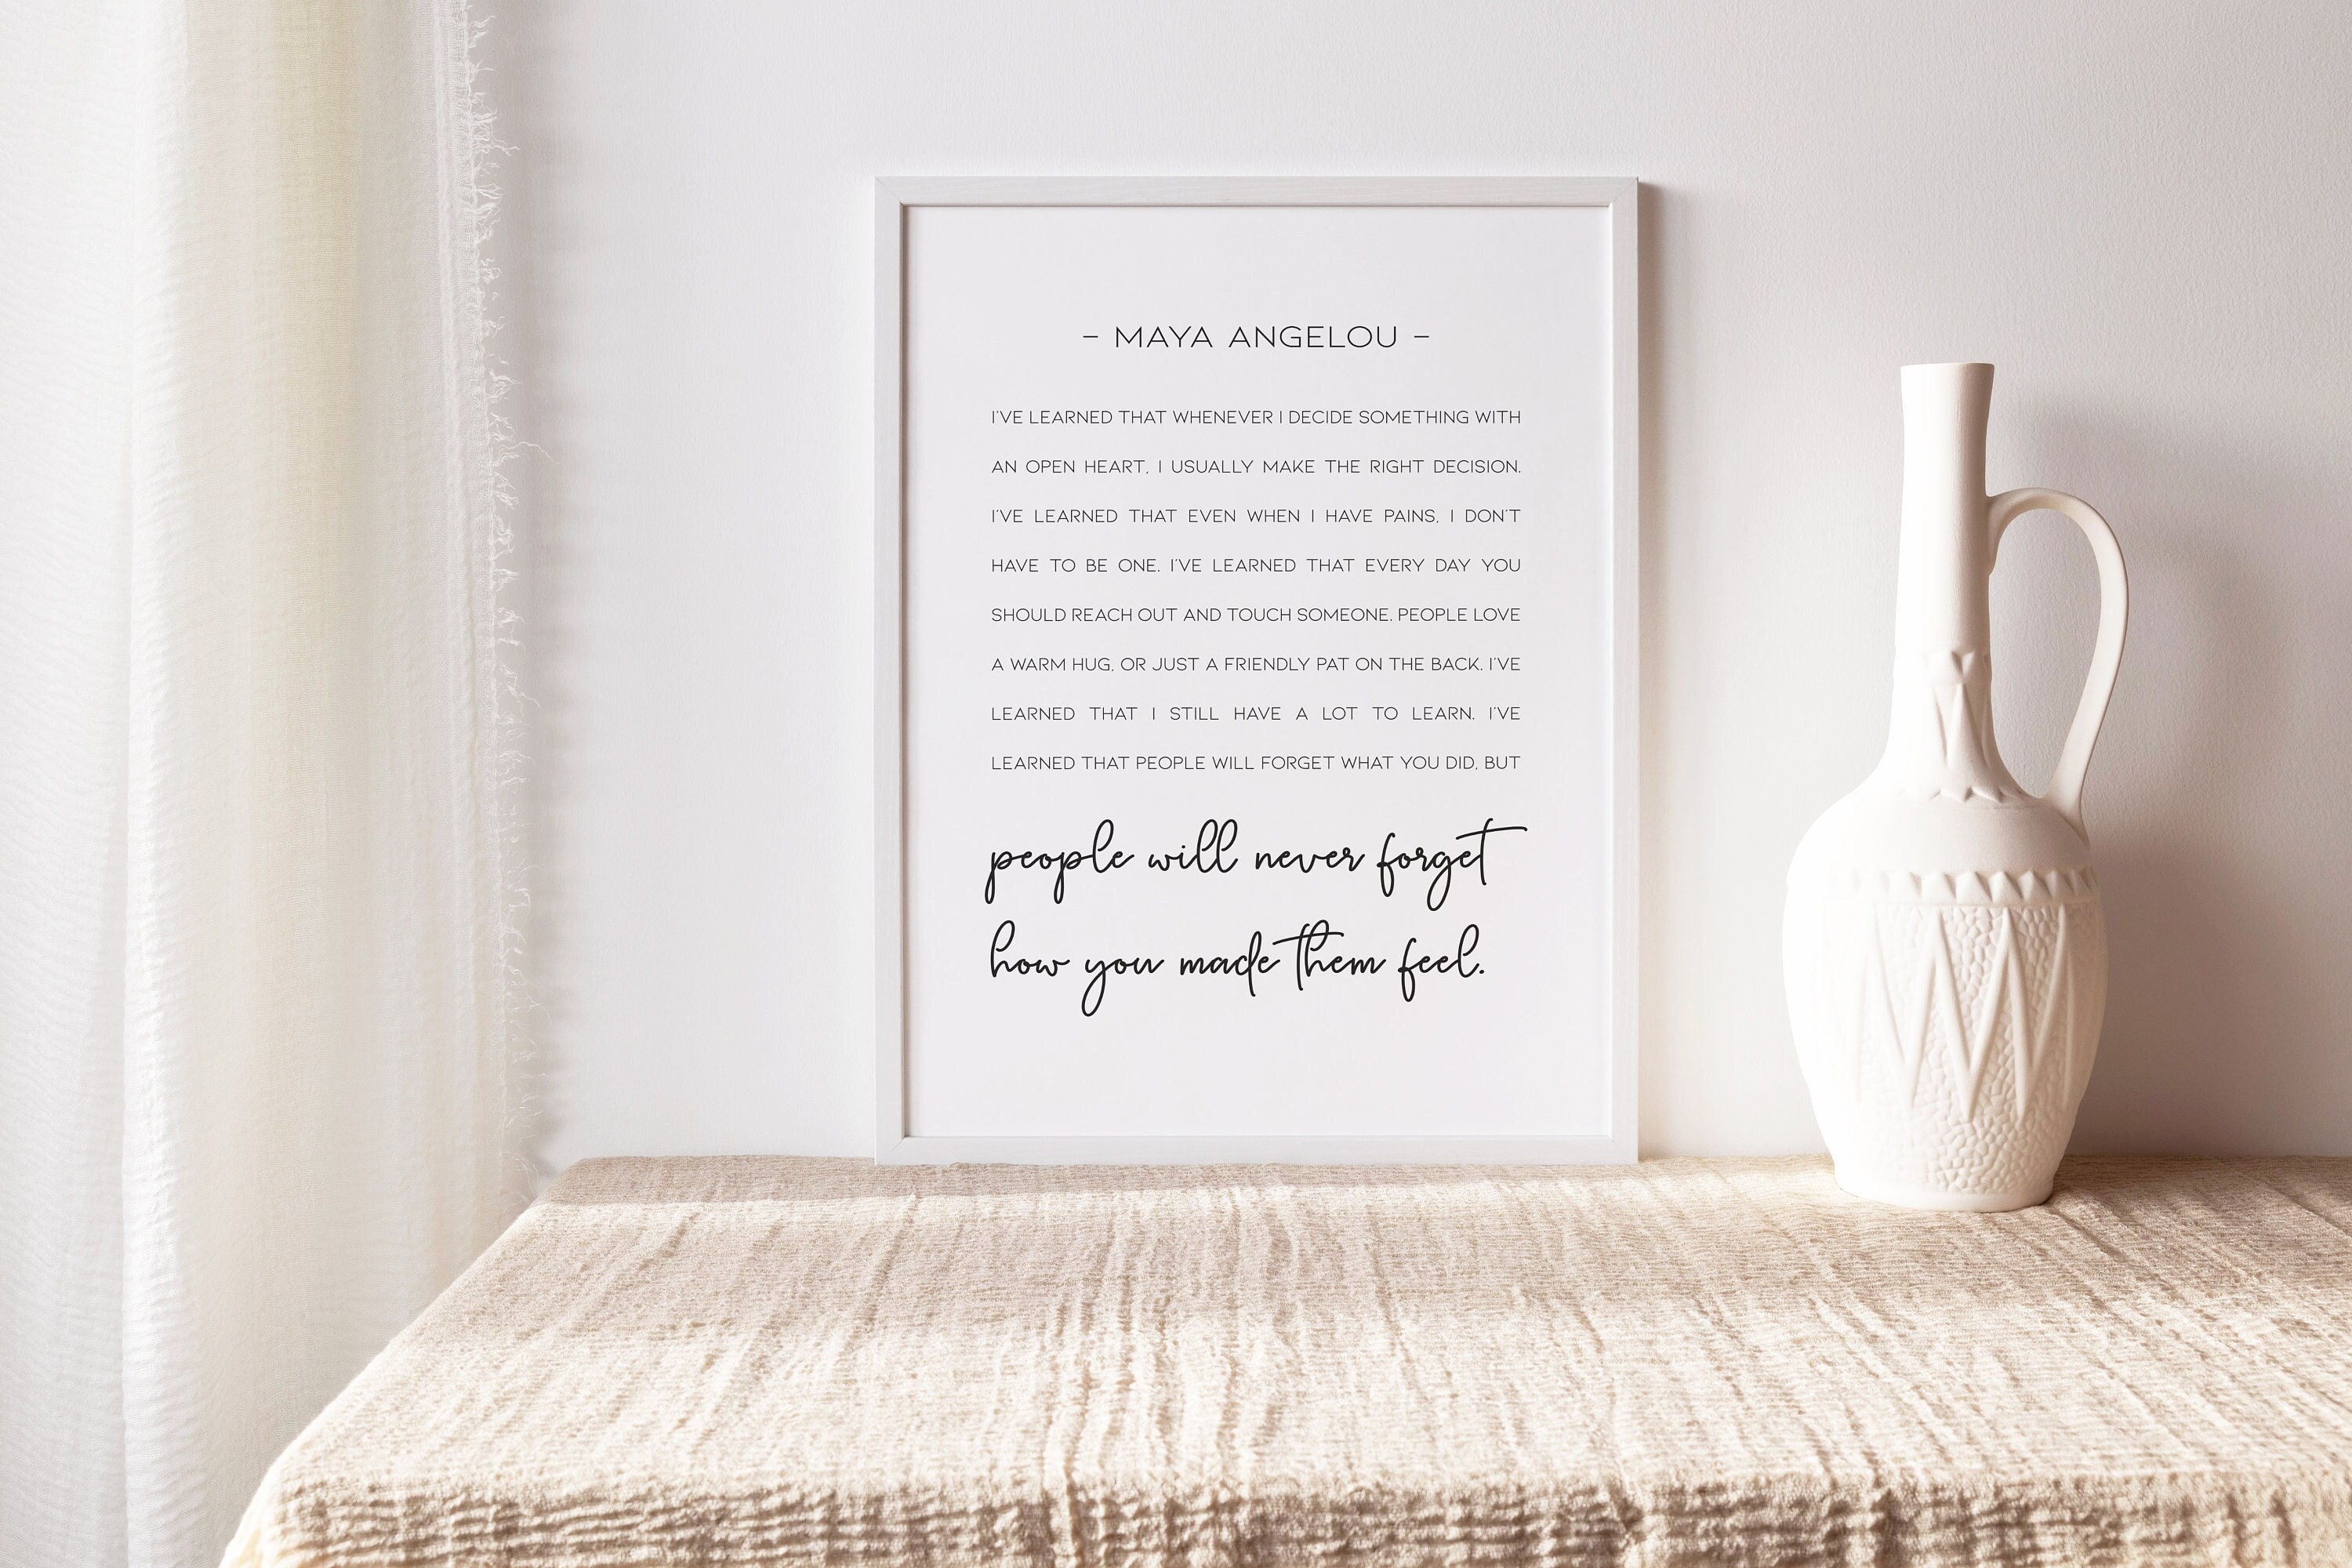 - MAYA ANGELOU -
I'VE LEARNED THAT WHENEVER I DECIDE SOMETHING WITH
AN OPEN HEART, I USUALLY MAKE THE RIGHT DECISION.
I'VE LEARNED THAT EVEN WHEN I HAVE PAINS, I DON'T
HAVE TO BE ONE. I'VE LEARNED THAT EVERY DAY YOU
SHOULD REACH OUT AND TOUCH SOMEONE. PEOPLE LOVE
A WARM HUG, OR JUST A FRIENDLY PAT ON THE BACK. I'VE
LEARNED THAT I STILL HAVE A LOT TO LEARN. I'VE
LEARNED THAT PEOPLE WILL FORGET WHAT YOU DID, BUT
people will never forget
how you made them feel.